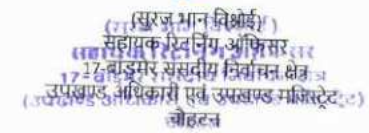 (सुरज भान विश्नोई)
सहायक रिटर्निंग ऑफिसर
17-बाड़मेर संसदीय निर्वाचन क्षेत्र
उपखण्ड अधिकारी एवं उपखण्ड मजिस्ट्रेट
चौहटन